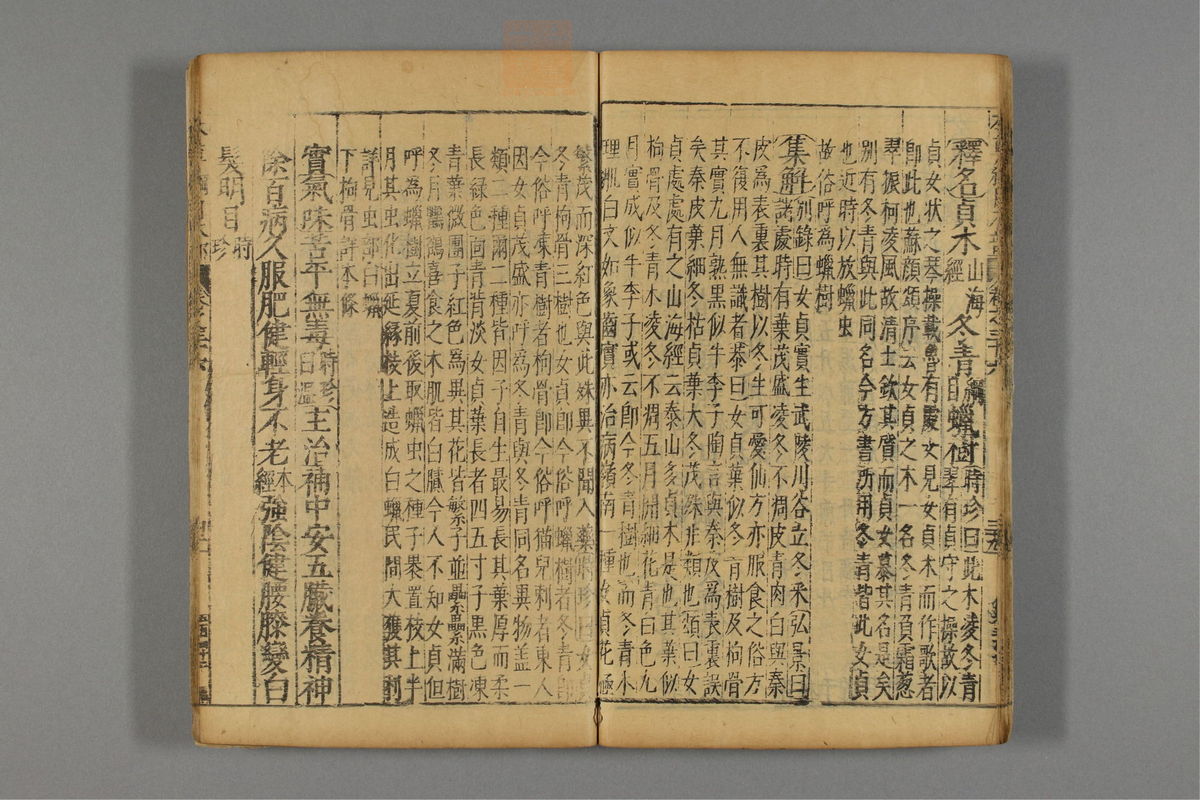 釋名貞木山海經冬青綱目蠟樹時珍曰此木凌冬青
翠有貞守之操故以
貞女狀之琴操載魯有處女見女貞木而作歌者
即此也蘇顏頌序云女貞之木一名冬青負霜葱
翠振柯凌風故清士欽其質而貞女慕其名是矣
別有冬青與此同名今方書所用冬青皆此女貞
也近時以放蠟虫
故俗呼為蠟樹
集解別錄曰女貞實生武陵川谷立冬采弘景曰
諸處時有葉茂盛凌冬不凋皮青肉白與秦
皮為表裏其樹以冬生可愛仙方亦服食之俗方
不復用人無識者恭曰女貞葉似冬青樹及枸骨
其實九月熟黑似牛李子陶言與秦皮為表裏誤
矣秦皮葉細冬枯貞葉大冬茂殊非類也頌曰女
貞處處有之山海經云泰山多貞木是也其葉似
枸骨及冬青木凌冬不凋五月開細花青白色九
月實成似牛李子或云即今冬青樹也而冬青木
理肌白文如象齒實亦治病嶺南一種女貞花極
繁茂而深紅色與此殊異不聞入藥時珍曰女貞
冬青枸骨三樹也女貞即今俗呼蠟樹者冬青即
今俗呼凍青樹者枸骨即今俗呼猫兒刺者東人
因女貞茂盛亦呼為冬青與冬青同名異物盖一
類二種爾二種皆因子自生最易長其葉厚而柔
長綠色面青背淡女貞葉長者四五寸子黑色凍
青葉微團子紅色為異其花皆繁子並纍纍滿樹
冬月鸜鵒喜食之木肌皆白膩今人不知女貞但
呼為蠟樹立夏前後取蠟虫之種子裹置枝上半
月其虫化出延緣枝上造成白蠟民間大獲其利
詳見虫部白蠟
下枸骨詳本條
實氣味苦平無毒時珍曰溫主治補中安五臟養精神
除百病久服肥健輕身不老本經強陰健腰膝變白
髮明目時珍